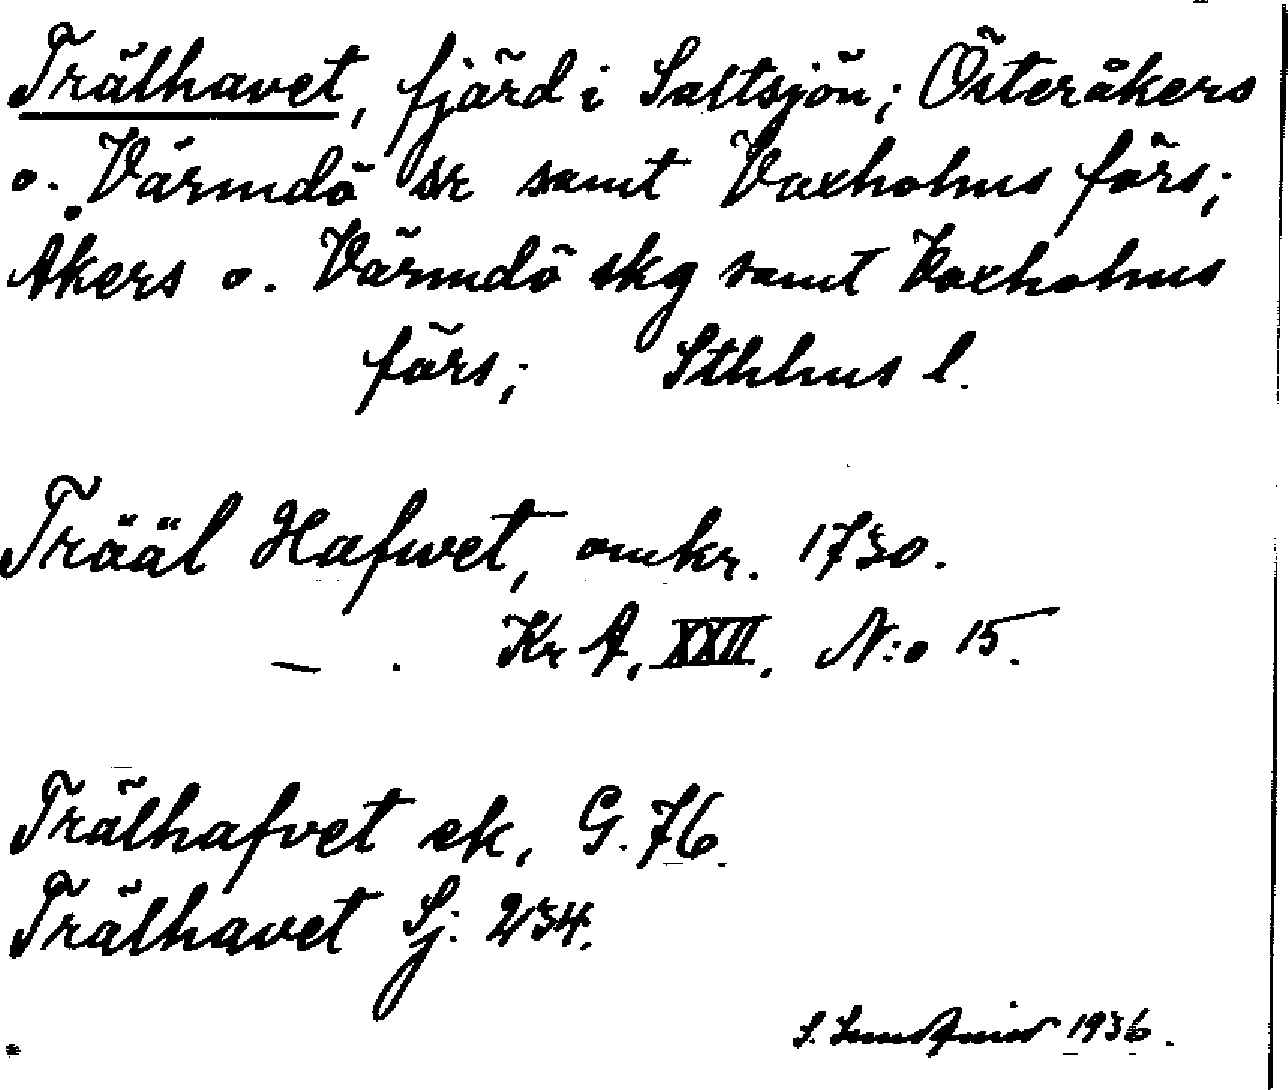 Trälhavet, fjärd i Saltsjön; Österåkers
o. Värmdö sk samt Vaxholms förs;
Åkers o. Värmdö skg samt Vaxholms
förs; Sthlms l.
Trääl Hafwet, omkr. 1730.
Kr A, XXII. N:o 15.
Trälhafvet ek. G. 76.
Trälhavet Sj. 234.
S. 1936.